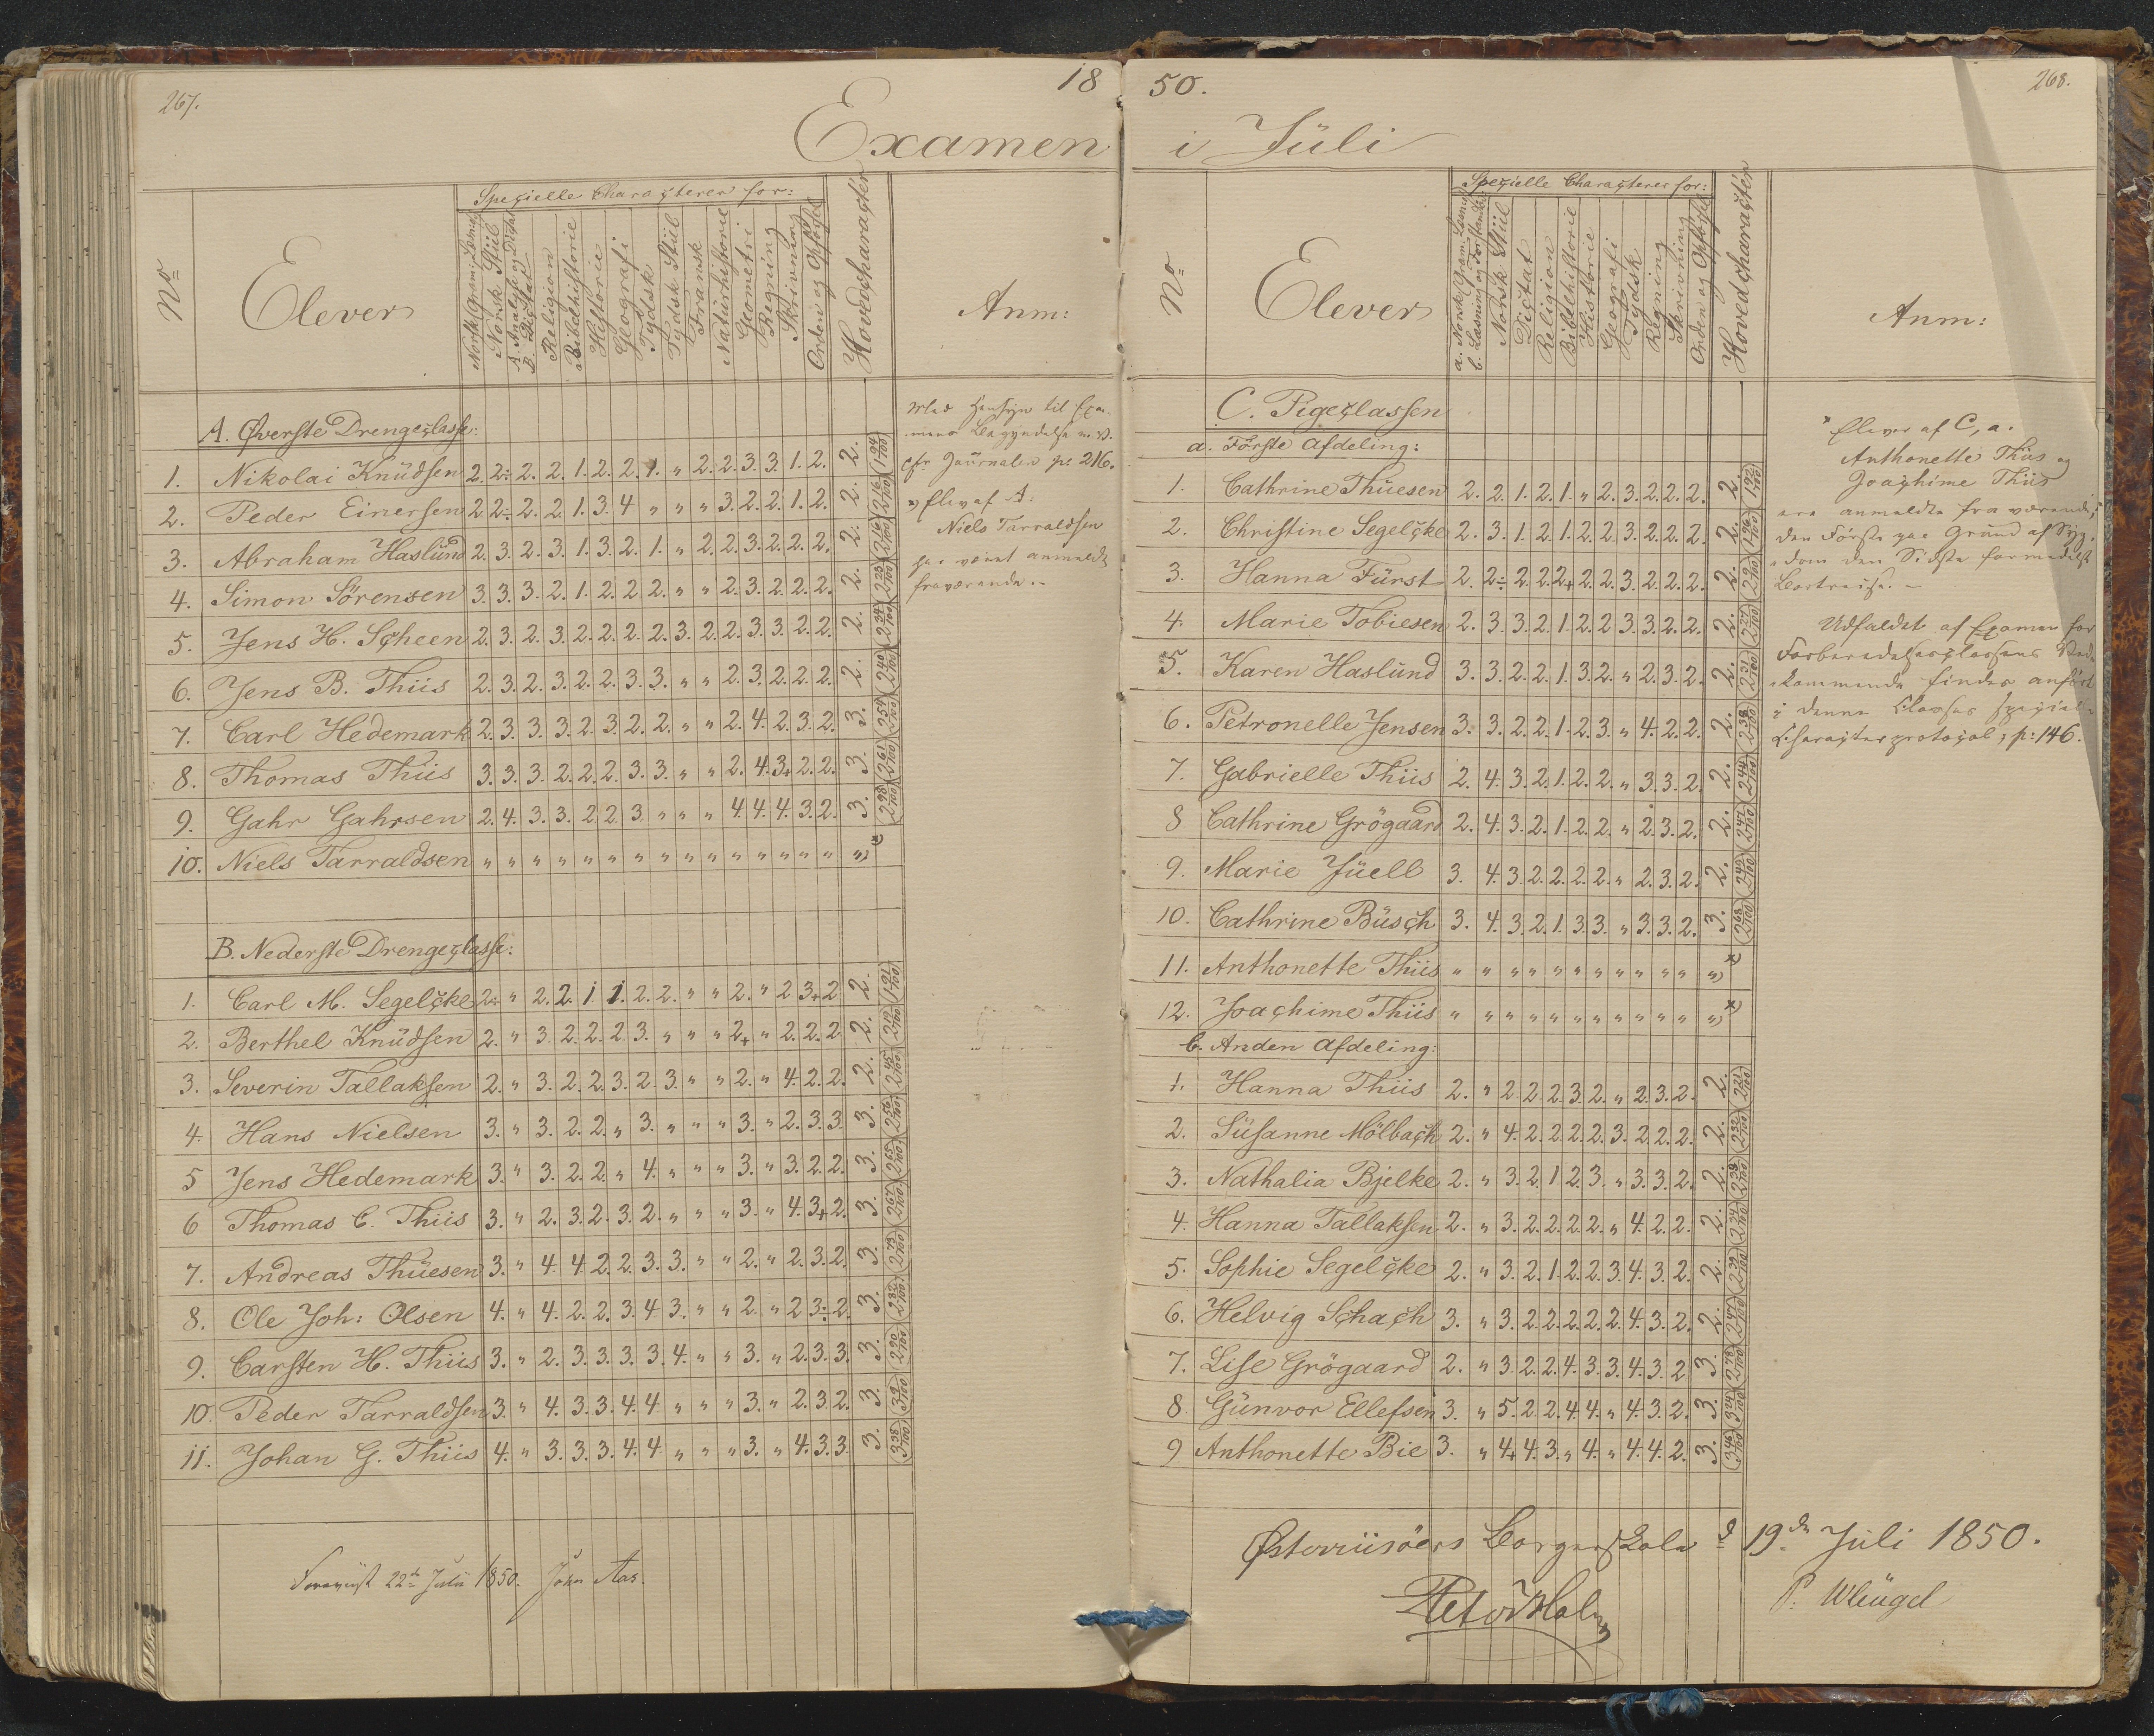 267.
18
Examen
No
Elever
Specielle Characterer for:
Norsk Gram: Læsning
Norsk Stiil
A. Analyse og Dictat
B. Dictat
Religion
Bibelhistorie
Historie
Geografi
Tydsk
Tydsk Stiil
Fransk
Naturhistorie
Geometri
Regning
Skrivning
Orden og Opførsel
Hovedcharacter
Anm:
A. Øverste Drengeclasse:
1. Nikolai Knüdsen 2. 2÷ 2. 2. 1. 2. 2. 1. " 2. 2. 3. 3. 1. 2. 2. 1 94/100
2. Peder Einersen 2. 2÷ 2. 2. 1. 3. 4 " " " 3. 2. 2. 1. 2. 2. 2 16/100
3. Abraham Haslünd 2. 3. 2. 3. 1. 3. 2. 1. " 2. 2. 3. 2. 2. 2. 2. 2 16/100
4. Simon Sörensen 3. 3. 3. 2. 1. 2. 2. 2. " " 2. 3. 2. 2. 2. 2. 2 23/100
5. Jens H. Scheen 2. 3. 2. 3. 2. 2. 2. 2. 3. 2. 2. 3. 3. 2. 2. 2. 2 34/100
6. Jens B. Thiis 2. 3. 2. 3. 2. 2. 3. 3. " " 2. 3. 2. 2. 2. 2. 2 40/100
7. Carl Hedemark 2. 3. 3. 3. 2. 3. 2. 2. " " 2. 4. 2. 3. 2. 3. 2 54/100
8. Thomas Thiis 3. 3. 3. 2. 2. 2. 3. 3. " " 2. 4. 3+ 2. 2. 3. 2 61/100
9. Gahr Gahrsen 2. 4. 3. 3. 2 2. 3. " " " 4. 4. 4. 3. 2. 3. 2 98/100
10. Niels Tarraldsen " " " " " " " " " " " " " " " " x)
Med Hensyn til Exa-
mens Begyndelse m. v.
cfr Journalen p: 216.
x) Elev af A.
Niels Tarraldsen
har været anmeldt
fraværende.-
B. Nederste Drengeclasse:
1. Carl M. Segelcke 2÷ " 2. 2. 1. 1. 2. 2. " " 2. " 2 3+ 2 2. 1 91/100
2. Berthel Knüdsen 2. " 3. 2. 2. 2. 3. " " " 2+ " 2. 2. 2 2.
3. Severin Tallaksen 2. " 3. 2. 2. 3. 2. 3. " " 2. " 4. 2. 2. 2. 2 45/100
4. Hans Nielsen 3. " 3. 2. 2. " 3. " " " 3. " 2. 3. 3. 3. 2 56/100
5 Jens Hedemark 3. " 3. 2. 2. " 4. " " " 3. " 3. 2. 2. 3. 2 65/100
6 Thomas C. Thiis 3. " 2. 3. 2. 3. 2. " " " 3. " 4. 3+ 2. 3. 2 67/100
7. Andreas Thüesen 3. " 4. 4. 2. 2. 3. 3. " " 2. " 2. 3. 2. 3. 2 73/100
8. Ole Joh: Olsen 4. " 4. 2. 2. 3. 4 3. " " 2. " 2 3÷ 2. 3.
9. Carsten H. Thiis 3. " 2. 3. 3. 3. 3. 4. " " 3. " 2. 3. 3. 3. 2 90/100
10. Peder Tarraldsen 3. " 4. 3. 3. 4. 4. " " " 3. " 2. 3. 2. 3.
11. Johan G. Thiis 4. " 3. 3. 3. 4. 4. " " " 3. " 4. 3. 3. 3. 3 38/100
Foreviist 22de Julii 1850. John Aas.
50.
268.
i Jüli
No
Elever
Specielle Characterer for:
a. Norsk Gram: Læsning
b. Læsning og Forstandsø.
Norsk Stiil
Dictat
Religion
Bibelhistorie
Historie
Geografi
Tydsk
Regning
Skrivning
Orden og Opførsel
Hovedcharacter
Anm:
C. Pigeclassen
a. Første Afdeling:
1. Cathrine Thüesen 2. 2. 1. 2. 1. " 2. 3. 2. 2. 2. 2. 1 92/100
2. Christine Segelcke 2. 3. 1. 2. 1. 2. 2. 3. 2. 2. 2. 2. 1 96/100
3. Hanna Fürst 2. 2÷ 2. 2. 2+ 2. 2. 3. 2. 2. 2. 2.
4. Marie Tobiesen 2. 3. 3. 2. 1. 2. 2 3. 3. 2. 2. 2. 2 27/100
5. Karen Haslünd 3. 3. 2. 2. 1. 3. 2. " 2. 3. 2. 2. 2 31/100
6. Petronelle Jensen 3. 3. 2. 2. 1. 2. 3. " 4. 2. 2. 2. 2 38/100
7. Gabrielle Thiis 2. 4. 3. 2. 1. 2. 2. " 3. 3. 2. 2. 2 44/100
8 Cathrine Grögaard 2. 4. 3. 2. 1. 2. 2. " 2. 3. 2. 2.
9. Marie Jüell 3. 4. 3. 2. 2. 2. 2. " 2. 3. 2. 2.
10. Cathrine Büsch 3. 4. 3. 2. 1. 3. 3. " 3. 3. 2. 3. 2 68/100
11. Anthonette Thiis " " " " " " " " " " " " x)
12. Joachime Thiis " " " " " " " " " " " " x)
b. Anden Afdeling:
1. Hanna Thiis 2. " 2. 2. 2. 3. 2. " 2. 3. 2. 2.
2. Süsanne Mölbach 2. " 4. 2. 2. 2. 2. 3. 2. 2. 2. 2. 2 32/100
3. Nathalia Bjelke 2. " 3. 2. 1. 2. 3. " 3. 3. 2. 2. 2 38/100
4. Hanna Tallaksen 2. " 3. 2. 2. 2. 2. " 4. 2. 2. 2.
5. Sophie Segelcke 2. " 3. 2. 1. 2. 2. 3. 4. 3. 2. 2. 2 39/100
6. Helvig Schach 3. " 3. 2. 2. 2. 2. 2. 4. 3. 2. 2. 2 47/100
7. Lise Grögaard 2. " 3. 2. 2. 4. 3. 3. 4. 3. 2 3. 2 78/100
8. Günvor Ellefsen 3. " 5. 2. 2. 4. 4. " 4. 3. 2. 3. 3 24/100
9 Anthonette Bie 3. " 4+ 4. 3. " 4. " 4. 4. 2. 3. 3 46/100
x Elever af C, a.
Anthonette Thiis og
Joachime Thiis
ere anmeldte fraværende;
den Første paa Grund af Syg-
dom den Sidste formedelst
Bortreise.-
Udfaldet af Examen for
Forberedelsesclassens Ved-
kommende findes anført
i denne Classes special-
Characterprotocol, p: 146.
Østerriisöers Borgerskole d. 19de Juli 1850.
Peter Holm
P. Wleügel